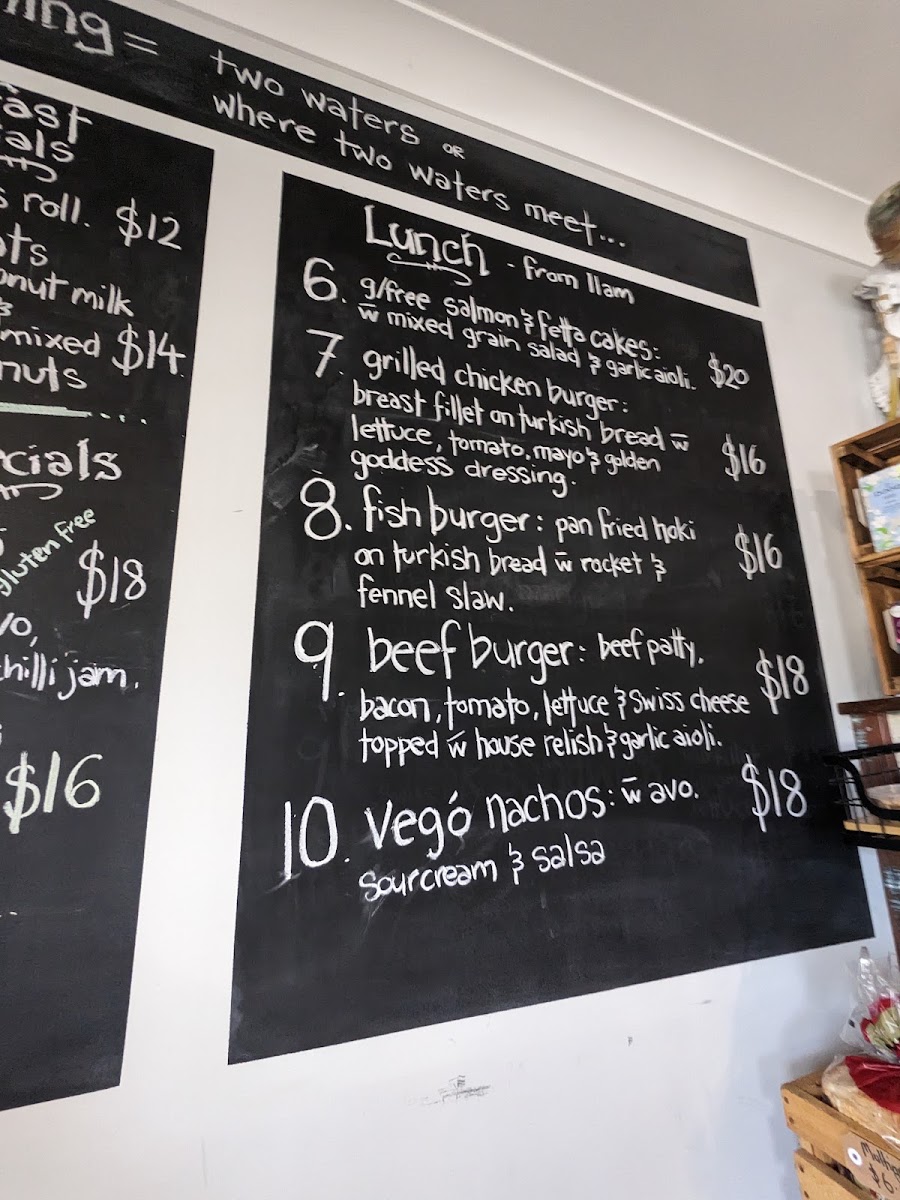 ing = two waters or
where two waters meet...
als
roll. $12
onut milk
mixed $14
nuts
cials
gluten free
$18
chilli jam.
$16
Lunch - from 11am
6. g/free salmon & fetta cakes:
w̄ mixed grain salad & garlic aioli. $20
7. grilled chicken burger:
breast fillet on turkish bread w̄
lettuce, tomato, mayo & golden $16
goddess dressing.
8. fish burger: pan fried hoki
on turkish bread w̄ rocket & $16
fennel slaw.
9. beef burger: beef patty,
bacon, tomato, lettuce & Swiss cheese $18
topped w̄ house relish & garlic aioli.
10. vegó nachos: w̄ avo. $18
sourcream & salsa
$6